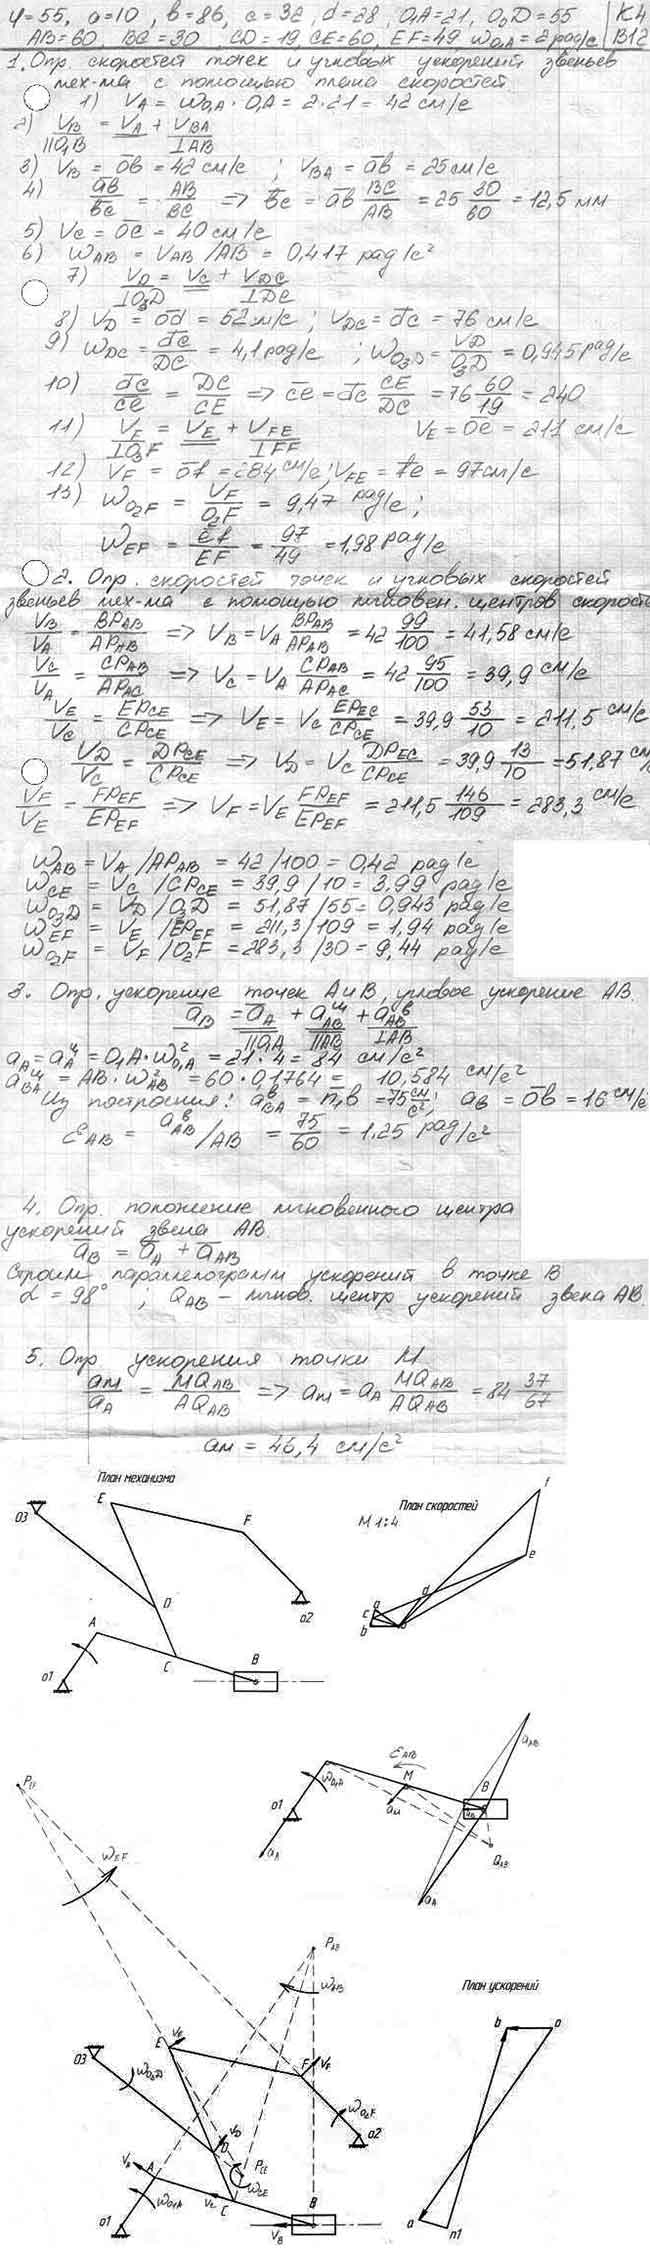 φ=55, a=10, b=86, c=32, d=28, O₁A=21, O₃D=55 K4
AB=60, BC=30, CD=19, CE=60, EF=49, ω₀₁A=2 рад/с В12
1. Опр. скоростей точек и угловых ускорений звеньев
мех-ма с помощью плана скоростей.
1) VA = ωO₁A · O₁A = 2·21 = 42 см/с
2) VB = VA + VBA
||O₁B ⊥AB
3) VB = ob = 42 см/с ; VBA = ab = 25 см/с
4) ab/bc = AB/BC => bc = ab BC/AB = 25 30/60 = 12,5 мм
5) VC = oc = 40 см/с
6) ωAB = VAB/AB = 0,417 рад/с²
7) VD = VC + VDC
⊥O₃D ⊥DC
8) VD = od = 52 см/с ; VDC = dc = 76 см/с
9) ωDC = dc/DC = 4,1 рад/с ; ωO₃D = VD/O₃D = 0,945 рад/с
10) dc/ce = DC/CE => ce = dc CE/DC = 76 60/19 = 240
11) VF = VE + VFE VE = oe = 211 см/с
⊥O₃F ⊥FF
12) VF = of = 284 см/с ; VFE = fe = 97 см/с
13) ωO₂F = VF/O₂F = 9,47 рад/с ;
ωEF = ef/EF = 97/49 = 1,98 рад/с
2. Опр. скоростей точек и угловых скоростей
звеньев мех-ма с помощью мгновен. центров скорост
VB/VA = BPAB/APAB => VB = VA BPAB/APAB = 42 99/100 = 41,58 см/с
VC/VA = CPAB/APAC => VC = VA CPAB/APAC = 42 95/100 = 39,9 см/с
VE/VC = EPCE/CPCE => VE = VC EPEC/CPCE = 39,9 53/10 = 211,5 см/с
VD/VC = DPCE/CPCE => VD = VC DPEC/CPCE = 39,9 13/10 = 51,87 см/
VF/VE = FPEF/EPEF => VF = VE FPEF/EPEF = 211,5 146/109 = 283,3 см/с
ωAB = VA/APAB = 42/100 = 0,42 рад/с
ωCE = VC/CPCE = 39,9/10 = 3,99 рад/с
ωO₃D = VD/O₃D = 51,87/55 = 0,943 рад/с
ωEF = VE/EPEF = 211,3/109 = 1,94 рад/с
ωO₂F = VF/O₂F = 283,3/30 = 9,44 рад/с
3. Опр. ускорение точек А и В, угловое ускорение АВ.
aB = aA + aABц + aABв
||O₁A ||AB ⊥AB
aA = aAц = O₁A·ω²O₁A = 21·4 = 84 см/с²
aBAц = AB·ω²AB = 60·0,1764 = 10,584 см/с²
Из построения: aBAв = n₁b = 75 см/с² ; aB = ob = 16 см/с
εAB = aABв/AB = 75/60 = 1,25 рад/с²
4. Опр. положение мгновенного центра
ускорений звена АВ.
aB = aA + aAB
Строим параллелограмм ускорений в точке В
α = 98° ; QAB – мгнов. центр ускорений звена АВ.
5. Опр ускорения точки М
aM/aA = MQAB/AQAB => aM = aA MQAB/AQAB = 84 37/67
aM = 46,4 см/с²
План механизма
o3 E F D o2 A C B o1
План скоростей
М 1:4
f e d a c b o
εAB aAB
ωO₁A M B o1 aM aB QAB aA aA
PEF
ωEF
PAB
ωAB
План ускорений
b o
a n1
E VE o3 ωO₃D F VF ωO₂F o2
VD D PCE ωCE
VA A VC C B ωO₁A o1 VB